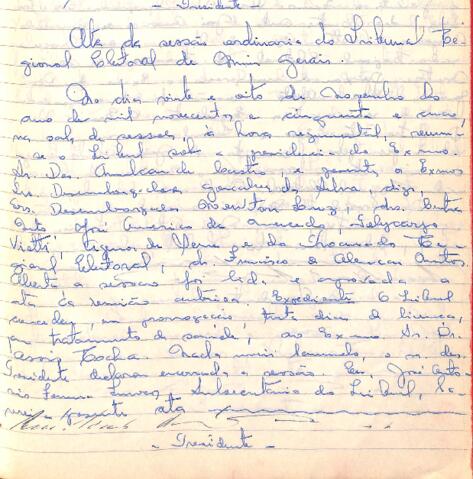 - Presidente -
Ata da sessão ordinaria do Tribunal Re-
gional Eleitoral de Minas Gerais.
Ao dia vinte e oito de novembro do
ano de mil novecentos e cinquenta e cinco,
na sala de sessões, à hora regimental, reuniu-
se o Tribunal sob a presidencia do Exmo.
Sr. Des. Amilcar de Castro e presentes os Exmos
Srs. Desembargadores Gonçalves da Silva, digo,
Srs. Desembargador Newton Luz, drs.
José Americo de Macedo,
Viotti, e do Procurador Re-
gional Eleitoral, dr. Francisco de Alencar
Aberta a sessão foi lida e aprovada a
ata da reunião anterior. Expediente O Tribunal
concedeu, em prorrogação, trinta dias de licença,
para tratamento de saúde, ao Exmo. Sr. Dr.
Assis Rocha. Nada mais havendo, o sr. des.
Presidente declarou encerrada a sessão. Eu, José Anto-
nio, Subsecretário do Tribunal, la-
vrei a presente ata
- Presidente -